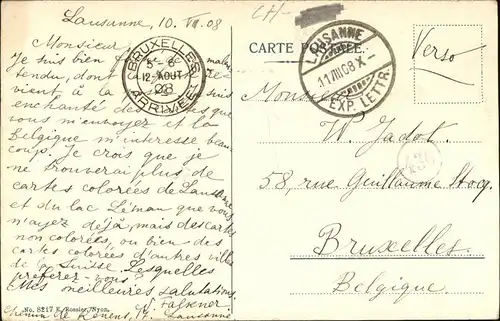 Lausanne, 10. VIII. 08
Monsieur,
Je suis bien
tendu, dont
vient à la suis
enchanté des que
vous m'envoyez et la
Belgique m'intéresse beau-
coup. Je crois que je
ne trouverai plus de
cartes colorées de Lausanne
et du lac Léman que vous
n'ayez déjà, mais des cartes
non colorées, ou bien des
cartes colorées d'autres villes
de la Suisse. Lesquelles
préférez-vous?
Mes meilleures salutations.
Falkner
Chemin de Renens, 14. Lausanne
No. 8217 E. Rossier, Nyon.
BRUXELLES
12-AOUT
08
ARRIVEE
CH-
CARTE POSTALE.
LAUSANNE
11.VIII.08 X-
EXP. LETTR.
Verso
Monsieur
W. Jadot
58, rue Guillaume Stocq
Bruxelles
Belgique.